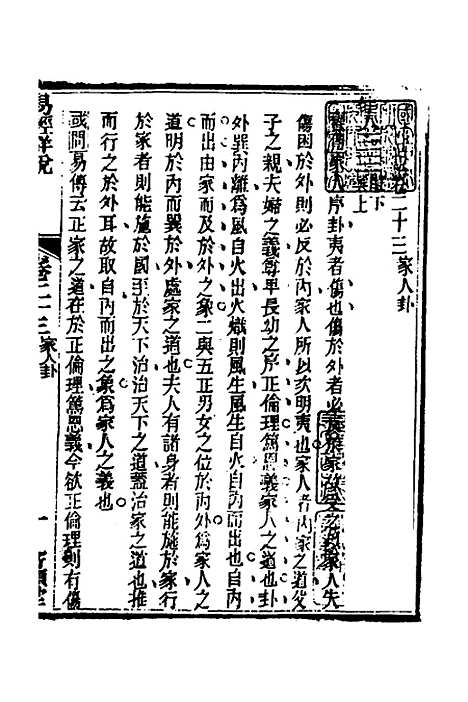 二十三家人卦
下
上
序卦夷者傷也傷於外者必反其家故受之以家人夫
傷困於外則必反於內家人所以次明夷也家人者內家之道父
子之親夫婦之義尊卑長幼之序正倫理篤恩義家人之道也卦
外巽內離為風自火出火熾則風生風生自火自內而出也自內
而出由家而及於外之象二與五正男女之位於內外為家人之
道明於內而巽於外處家之道也夫人有諸身者則能施於家行
於家者則能施於國至於天下治治天下之道蓋治家之道也推
而行之於外耳故取自內而出之象為家人之義也
或問易傳云正家之道在於正倫理篤恩義今欲正倫理則有傷
易經詳說
卷二十三家人卦
一